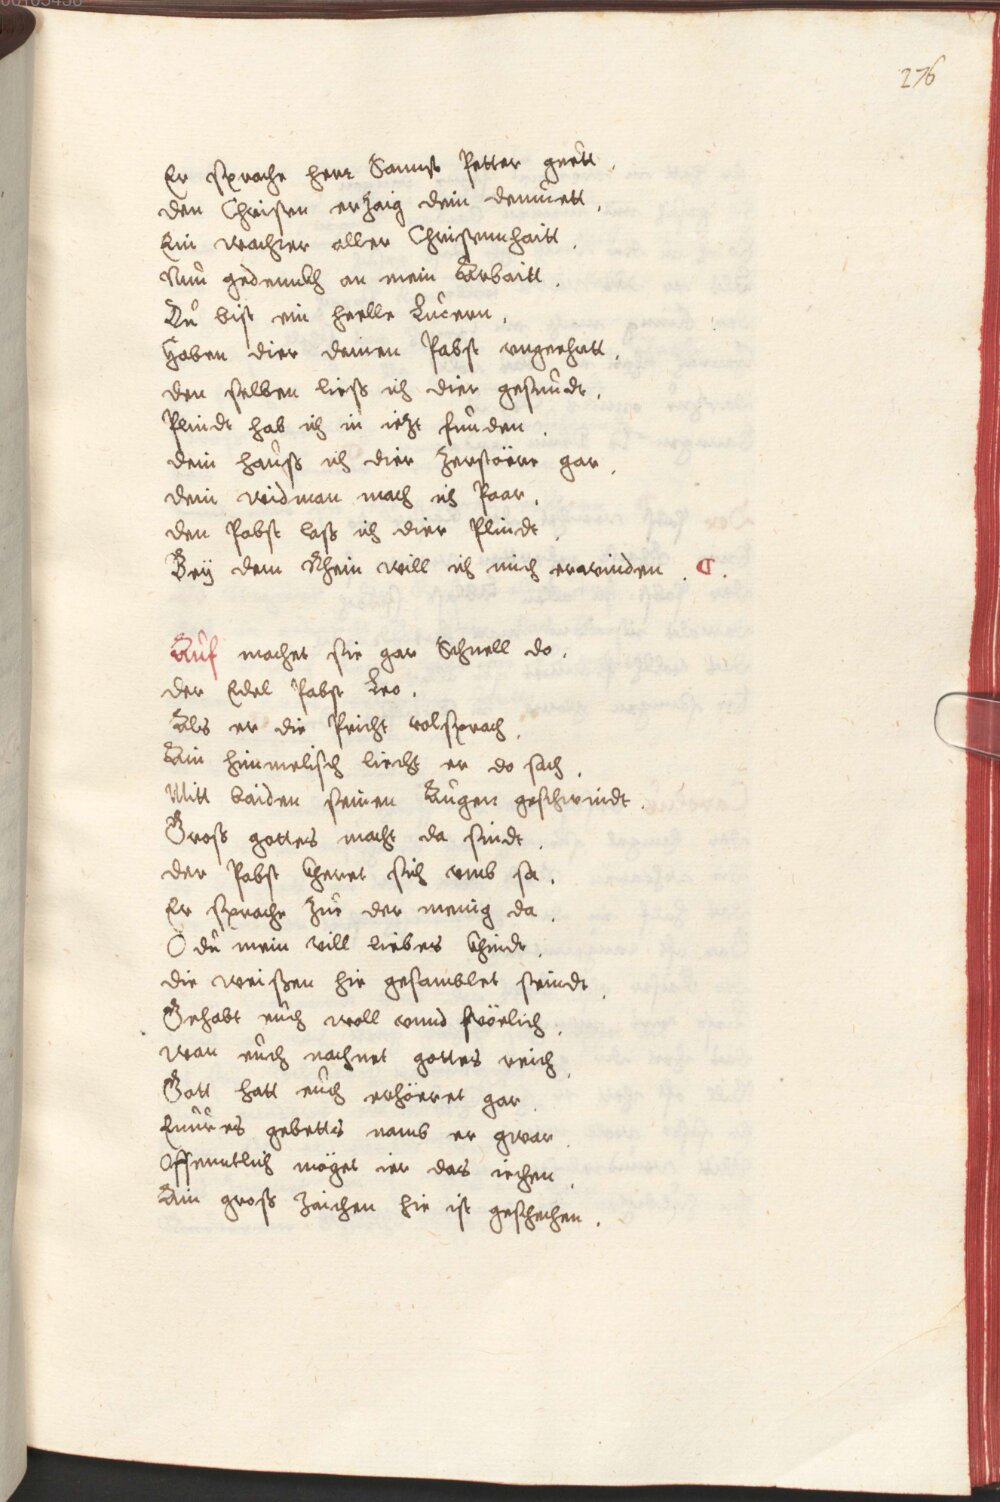 276
Er sprache herr Sannst Petter guett .
den Christen erzaig dein demuett .
Ein wachter aller Christennhaitt .
Nun gedennckh an mein Arbaitt .
Du bist ein heelle Lucern .
Haben dier deinen Pabst
den selben liess ich dier gesundt .
Plindt hab ich in iezt funden .
dein hauss ich dier zerstöere gar .
dein widman mach ich Paar .
den Pabst lass ich dier Plindt .
Bey dem Rhein will ich mich erwinden . C .
Auf machet sie gar Schnell do .
der Edel Pabst Leo .
Als er die Pricht volsprach .
Ain himmelisch liecht er do sach .
Mitt baiden seinen Augen geschwindt .
Gross gottes macht da sindt .
der Pabst kheret sich umb sa .
Er sprache zue der menig da .
O du mein vill liebes khindt .
die weissen hie gesamblet seindt .
Gehabt euch woll unnd fröelich .
wan euch nachnet gottes reich .
Gott hatt euch erhöeret gar .
Euures gebetts namb er gwar .
Offenntlich möget ier das iechen .
Ain gross zaichen hie ist geschechen .